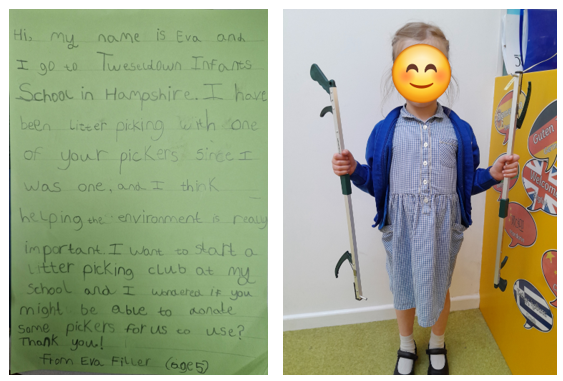 Hi, my name is Eva and
I go to Tweseldown Infants
School in Hampshire. I have
been Litter picking with one
of your pickers since I
was one, and I think
helping the environment is really
important I want to start a
Litter picking club at my
school and I wondered if you
might be able to donate
some pickers for us to use?
Thank you!
From Eva Filler (age 5)
Guten
Welcome